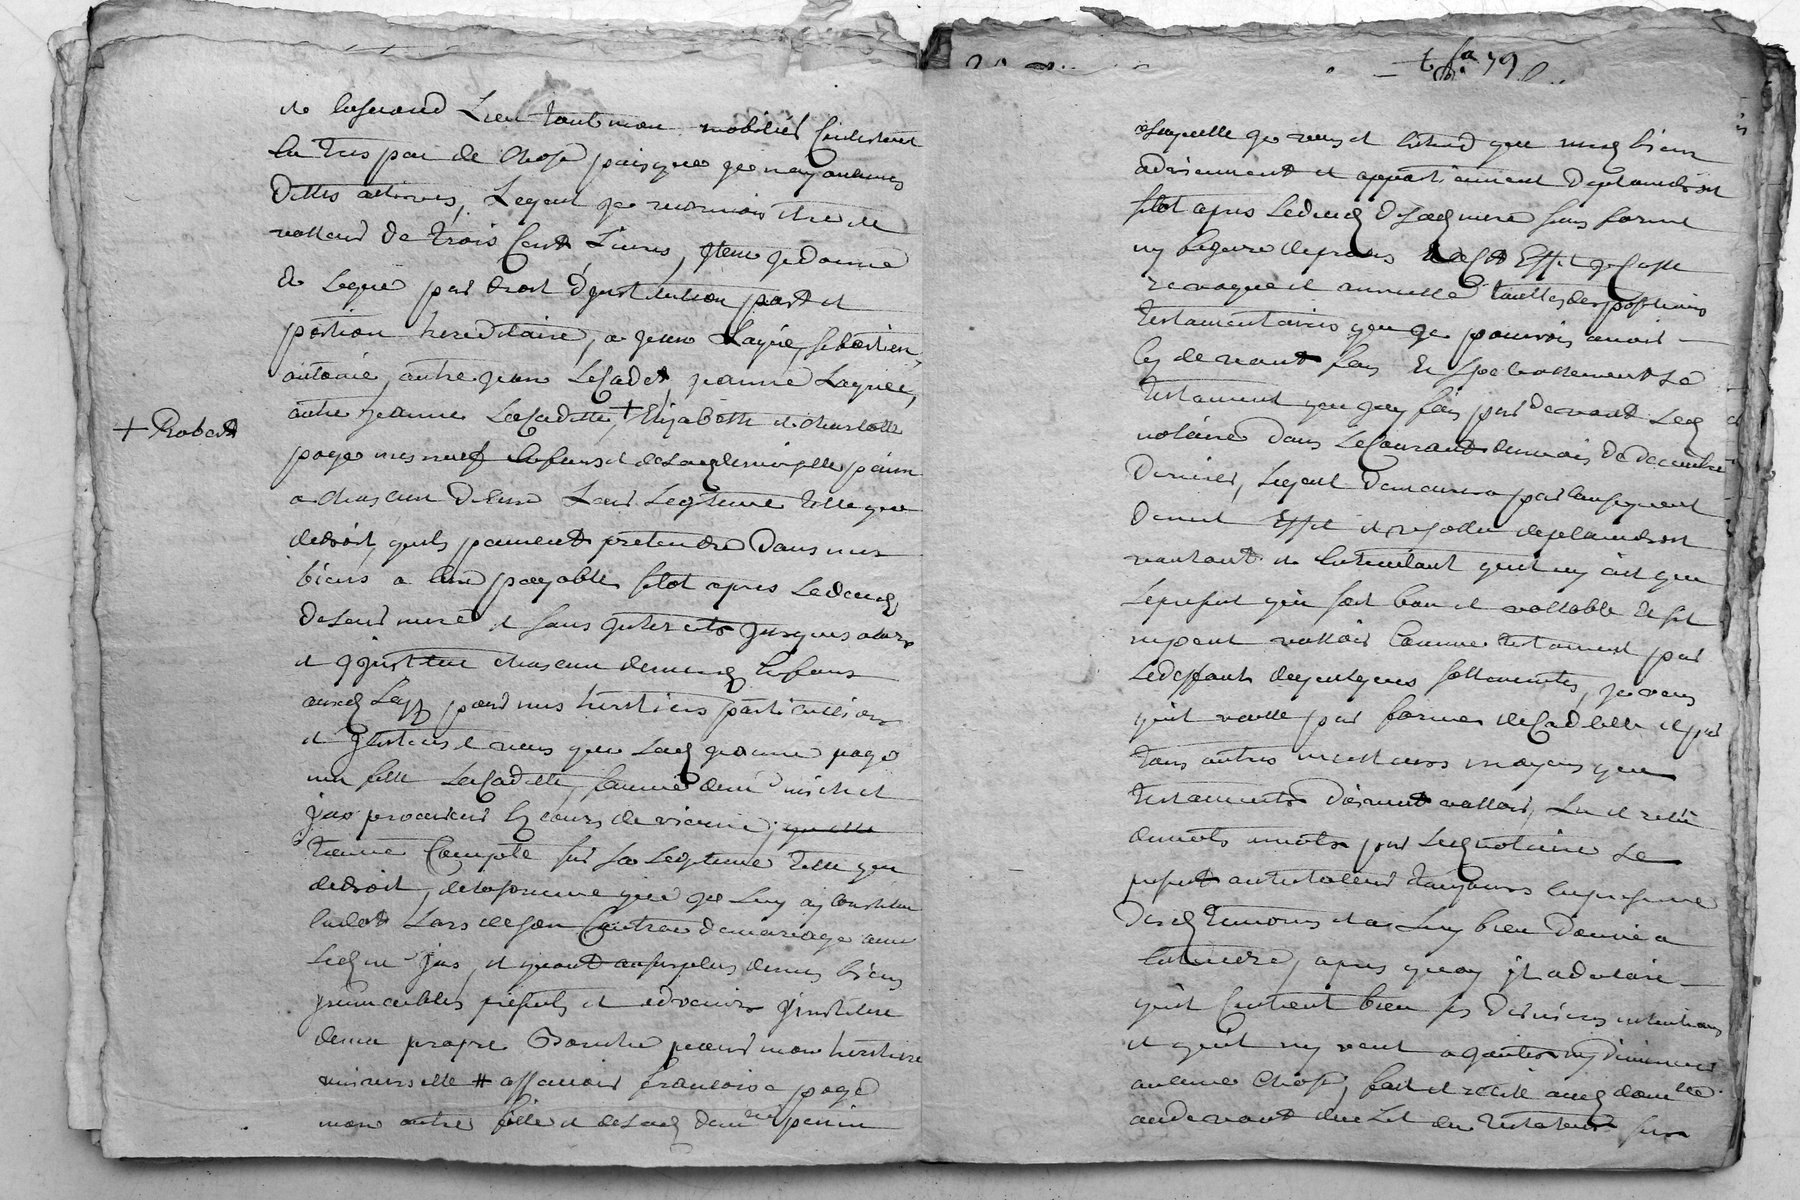 et lasecond Lieu toutmon mobilier Consistent
En Tres peu de Chose puisque je nay aucunes
Dettes actives, Lequel je reconnois être de
valleur De trois Cent Livres, Item je donne
et Legue par droit d'jnstitution part et
portion hereditaire, a jean Laîné, sebastien,
antoine, autre jean LeCadet, jeanne Laynée,
autre jeanne LaCadette, + Elizabeth et charlotte
+ Robert
page mes neuf Enfens et deladlle demoiselle perrin
a chascun d'Eux Leur Legitime telle que
dedroit, quils peuvent pretendre Dans mes
biens a Eux payable sitot apres Ledeceds
DeLeur mere et sans jnterets jusques alors
et jjnstitue chascun demesd Enfens
ausd Legz pour mes heritiers particulliers
et jentens et veus que Lad jeanne page
ma fille LaCadette, femme de me michel
jas procureur Es cours de vienne, que elle
tienne Compte sur sa Legitime telle que
dedroit, de la somme que je Luy ay Constitue
Endot Lors deson Contrat de mariage avec
Ledt me jas, et quant au surplus demes biens
jmmeubles presents et advenir j'jnstitue
dema propre Bouche pour mon heritiere
universelle # assavoir francoise page
mon autre fille et deLad demlle perrin
to fo 79
a Laquelle je veus et Entend que mesd biens
adviennent et appartiennent de plain droit
sitot apres Ledeceds de Sad mere sans forme
ny figure de proces a Cet Effet je Casse
revoque et annulle touttes dispositions
testamentaires que je pourrois avoir
Cy devant fais Et specialement Le
testament que jay fais par devant Led
notaire dans Le Courant du mois de decembre
Dernier, Lequel demeurera par Consequent
de nul Effet et valleur de plain droit
voulant et Entendant quil ny ait que
Le present qui soit bon et vallable Et sil
ne peut valloir Comme testament par
Le deffaut de quelques sollemnités, je veus
quil vaille par forme de Codicille et par
tous autres meilleurs moyens que
testaments doivent valloir, Lu et relu
de mots a mots par Led notaire Le
present au testateur toujours En presence
Desd temoins et a Luy bien donné a
Entendre, apres quoy jl a declaré
quil Contient bien ses Dernieres intentions
et quil ny veut ajouter ny Diminuer
aucune Chose, fait et recité aud domlle
au devant du Lit du testateur sur